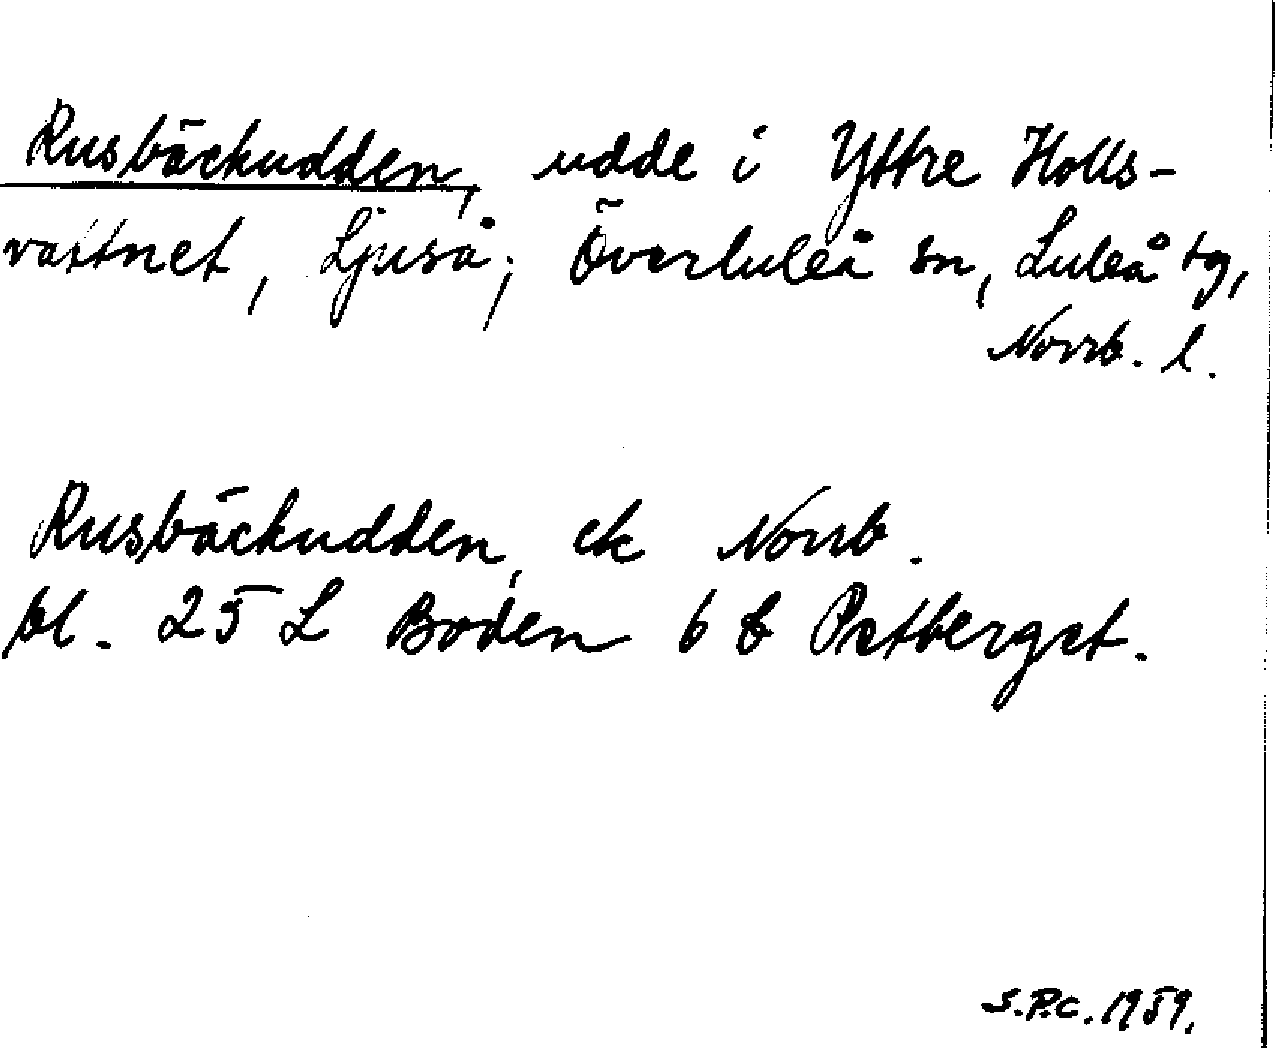 Rusbäckudden, udde i Yttre Holls-
vattnet, Ljuså, Överluleå sn, Luleå tg,
Norrb. l.
Rusbäckudden, ek Norrb.
bl. 25 L Boden 6 b Petberget.
S.P.C. 1959.